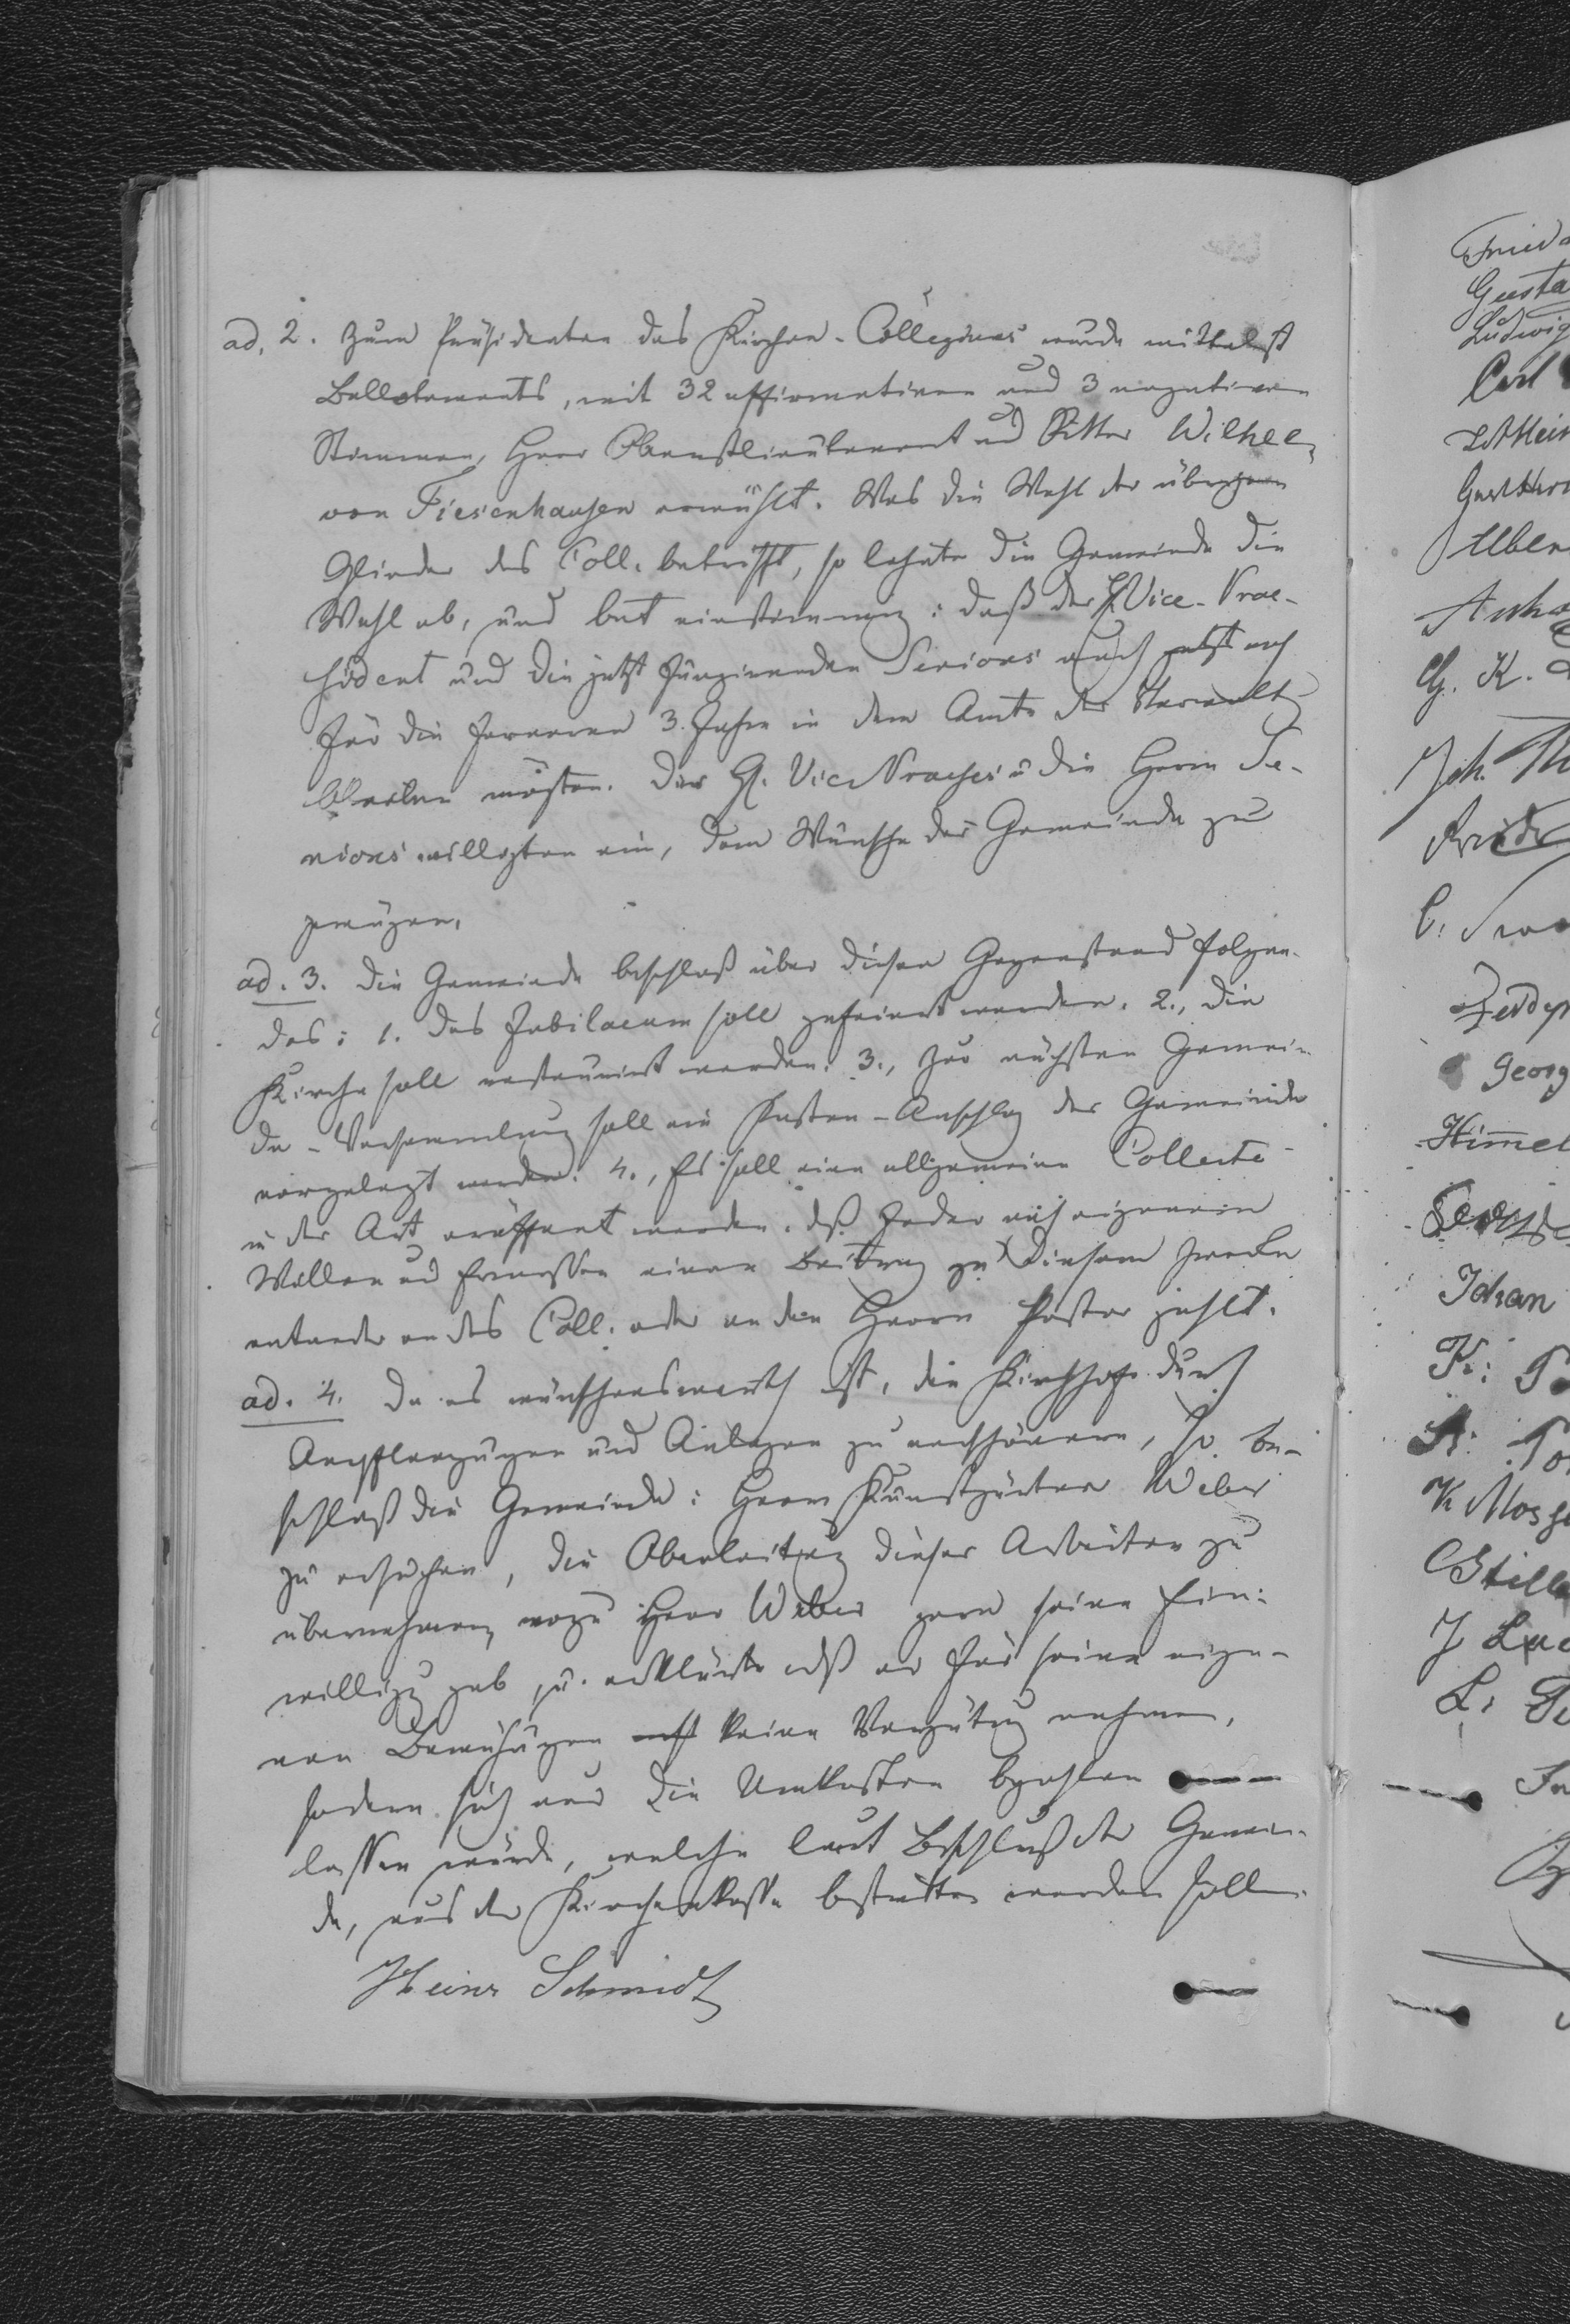 ad. 2. Zum Präsidenten des Kirchen-Collegiums wurde mittelst
Ballotements, mit 32 affirmativen und 3 negativen
Stimmen, Herr Obristlieutenant und Ritter Wilhelm
von Tiesenhausen erwählt. Was die Wahl der übrigen
Glieder des Coll. betrifft, so lehnte die Gemeinde die
Wahl ab, und bat einstimmig: daß der H. Vice-Prae-
sident und die jetzt fungirenden Seniors auch jetzt noch
für die ferneren 3. Jahre in dem Amte der Verwaltg
bleiben mögten. Der H. Vice Praeses u die Herrn Se-
niors willigten ein, dem Wunsche der Gemeinde zu
genügen.
ad. 3. Die Gemeinde beschloß über diesen Gegenstand folgen-
des: 1. Das Jubilaeum soll gefeiert werden. 2., Die
Kirche soll restaurirt werden. 3., Zur nächsten Gemein-
de-Versammlung soll ein Kosten-Anschlag der Gemeinde
vorgelegt werden. 4., Es soll eine allgemeine Collecte
in der Art eröffnet werden, dß Jeder nach eigenem
Willen und Ermessen einen Beitrag zu diesem Zwecke
entweder an das Coll. oder an den Herrn Pastor zahlt.
ad. 4. Da es wünschenswerth ist, die Kirchhöfe durch
Anpflanzungen und Anlagen zu verschönern, so be-
schloß die Gemeinde: Herrn Kunstgärtner Weber
zu ersuchen, die Oberleitung dieser Arbeiten zu
übernehmen, wozu Herr Weber gern seine Ein-
willigg gab, u. erklärte dß er für seine eige-
nen Bemühungen keine Vergütung nehmen,
sondern sich nur die Unkosten bezahlen
lassen würde, welche laut Beschluß der Gemein-
de, aus der Kirchenkasse bestritten werden sollen.
Heinr Schmidt
Gusta
Ludwig
Carl
G. K.
Joh. Th
Georg
Himmel
Johan
K:
A:
K Mosge
Stille
J Luc
L: